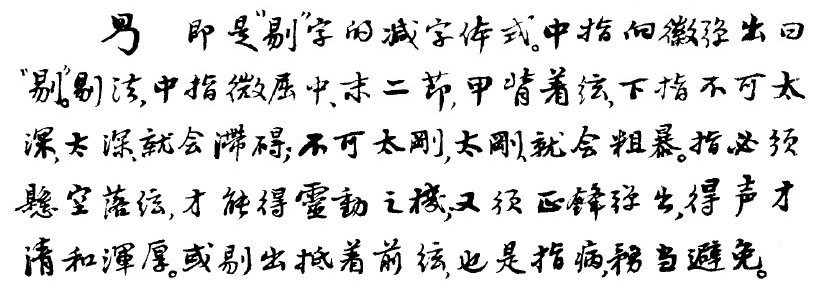 𠃓 即是"剔"字的减字体式。中指向徽弹出曰
"剔"。剔法,中指微屈中、末二节,甲背着弦,下指不可太
深,太深就会滞碍;不可太刚,太刚就会粗暴。指必须
懸空落弦,才能得靈動之機,又须正鋒弹出,得声才
清和渾厚。或剔出抵着前弦,也是指病,務当避免。